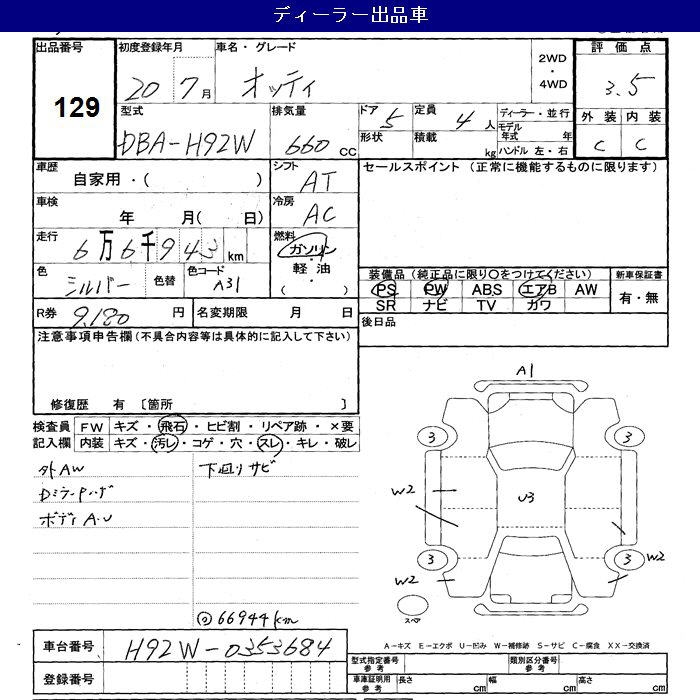 ディーラー出品車
出品番号
129
初度登録年月
20 7月
車名・グレード
オッティ
2WD
・
4WD
評価点
3.5
型式
DBA-H92W
排気量
660 CC
ドア 5
形状
定員 4 人
積載 kg
ディーラー・並行
モデル年式 年
ハンドル 左・右
外装 内装
C C
車歴
自家用・( )
シフト
AT
セールスポイント (正常に機能するものに限ります)
車検
年 月( 日)
冷房
AC
走行
6万6千943km
燃料
ガソリン
・
軽油
( ・ )
色
シルバー
色替
色コード
A31
装備品(純正品に限り○をつけてください)
PS PW ABS エアB AW
SR ナビ TV カワ
新車保証書
有・無
R券 9,180 円
名変期限 月 日
後日品
注意事項申告欄(不具合内容等は具体的に記入して下さい)
修復歴 有 〔箇所 〕
検査員
記入欄
FW キズ・飛石・ヒビ割・リペア跡・×要
内装 キズ・汚レ・コゲ・穴・スレ・キレ・破レ
外AW
DミラーPハゲ
ボディA.U
下廻りサビ
◎66944km
A1
3
3
W2
U3
3
3
W2
W2
スペア
A−キズ E−エクボ U−凹み W−補修跡 S−サビ C−腐食 XX−交換済
車台番号
H92W-0353684
登録番号
型式指定番号
参考
類別区分番号
参考
車庫証明用
参考
長さ cm
幅 cm
高さ cm